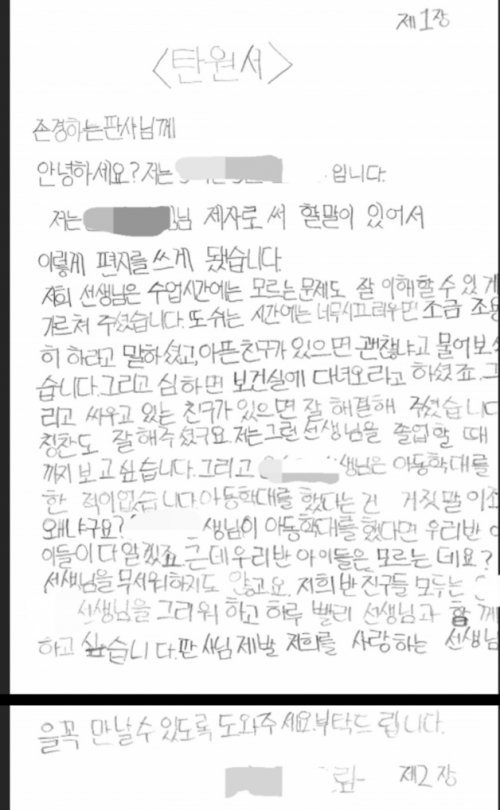 제1장
<탄원서>
존경하는판사님께
안녕하세요? 저는 입니다.
저는 님 제자로 써 할말이 있어서
이렇게 편지를 쓰게 됐습니다.
저희 선생님은 수업시간에는 모르는문제도 잘 이해할 수 있게
가르쳐 주셨습니다. 또 쉬는 시간에는 너무시끄러우면 조금 조용
히 하라고 말하셨고, 아픈친구가 있으면 괜찮냐고 물어보셨
습니다. 그리고 심하면 보건실에 다녀오라고 하셨죠. 그
리고 싸우고 있는 친구가 있으면 잘 해결해 주셨습니다
칭찬도 잘해주셨구요. 저는 그런 선생님을 졸업할 때
까지 보고 싶습니다. 그리고 생님은 아동학대를
한 적이없습니다. 아동학대를 했다는 건 거짓말이죠
왜냐구요? 생님이 아동학대를 했다면 우리반 아
이들이 다 알겠죠. 근데 우리반 아이들은 모르는 데요?
선생님을 무서워하지도 않고요. 저희 반 친구들 모두는
선생님을 그리워 하고 하루 빨리 선생님과 함께
하고 싶습니다. 판사님 제발 저희를 사랑하는 선생님
을꼭 만날수 있도록 도와주세요. 부탁드립니다.
제2장